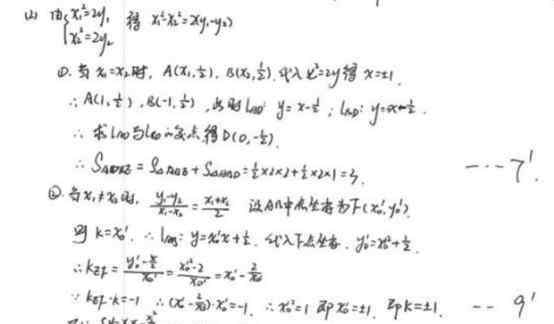 (1) 由{x₁²=2y₁ x₂²=2y₂ 得 x₁²-x₂²=2(y₁-y₂)
①. 当 x₁=x₂时, A(x₁,½), B(x₂,½). 代入 x²=2y得 x=±1.
∴ A(1,½), B(-1,½), 此时 l_AD: y=x-½; l_BD: y=-x-½.
∴ 求l_AD与l_BD的交点得D(0,-½).
∴ S_ADBE = S_△ABE + S_△ABD = ½×2×2+½×2×1=3. ---7'.
② 当 x₁≠x₂时, (y₁-y₂)/(x₁-x₂) = (x₁+x₂)/2 设AB中点坐标为F(x₀',y₀').
则 k=x₀'. ∴ l_AB: y=x₀'x+½. 代入F点坐标. y₀'=x₀'²+½.
∴ k_EF = = (x₀'²-2)/x₀' = x₀'-2/x₀'
∵ k_EF·k=-1 ∴ (x₀'-2/x₀')·x₀'=-1. ∴ x₀'²=1 即x₀'=±1. 即k=±1. -- 9'